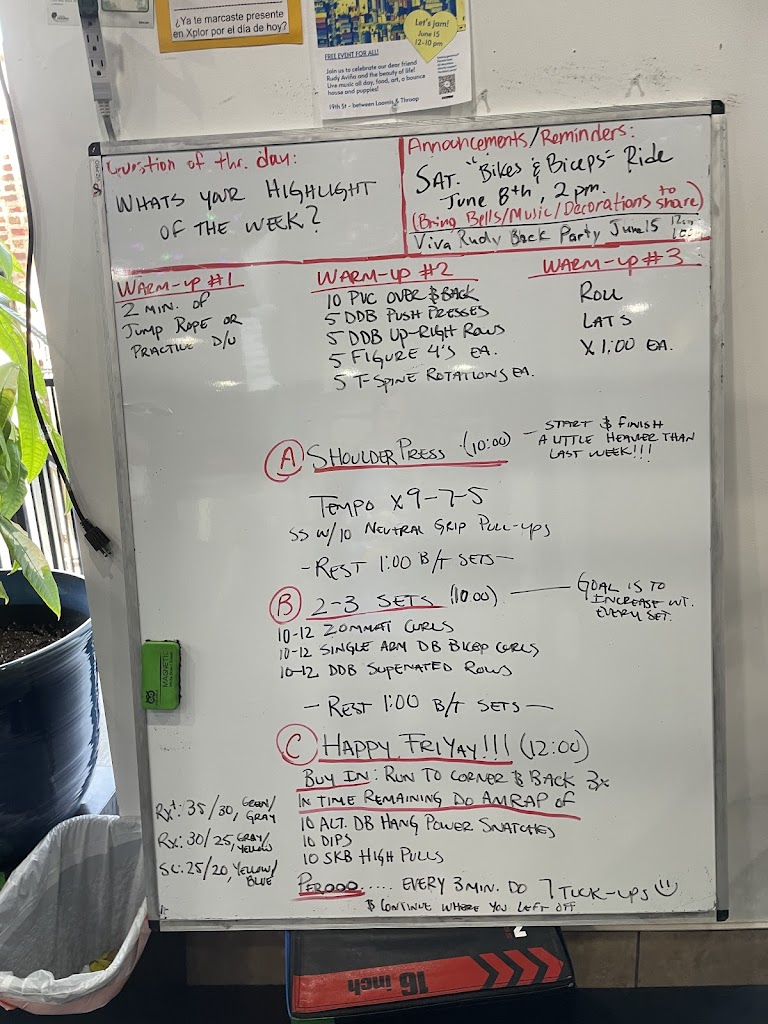 ¿Ya te marcaste presente
en Xplor por el día de hoy?
Let's jam!
June 15
12-10 pm
FREE EVENT FOR ALL!
Join us to celebrate our dear friend
Rudy Aviña and the beauty of life!
Live music all day, food, art, a bounce
house and puppies!
19th St - between Loomis & Throop
Question of the day:
WHATS YOUR HIGHLIGHT
OF THE WEEK?
Announcements/Reminders:
SAT. "Bikes & Biceps" Ride
June 8th, 2 pm.
(Bring Bells/Music/Decorations to share)
Viva Rudy Block Party June 15
WARM-UP #1
2 MIN. OF
JUMP ROPE OR
PRACTICE D/U
WARM-UP #2
10 PVC OVER & BACK
5 DDB PUSH PRESSES
5 DDB UP-RIGH ROWS
5 FIGURE 4'S EA.
5 T-SPINE ROTATIONS EA.
WARM-UP #3
ROLL
LATS
X 1:00 EA.
A SHOULDER PRESS (10:00)
– START & FINISH
A LITTLE HEAVIER THAN
LAST WEEK!!!
TEMPO X9-7-5
SS W/10 NEUTRAL GRIP PULL-UPS
-REST 1:00 B/T SETS-
B 2-3 SETS (10:00)
GOAL IS TO
INCREASE WT.
EVERY SET.
10-12 ZOMMAT CURLS
10-12 SINGLE ARM DB BICEP CURLS
10-12 DDB SUPENATED ROWS
- REST 1:00 B/T SETS -
C HAPPY FRIYAY!!! (12:00)
BUY IN: RUN TO CORNER & BACK 3x
IN TIME REMAINING DO AMRAP OF
10 ALT. DB HANG POWER SNATCHES
10 DIPS
10 SKB HIGH PULLS
PEROOO..... EVERY 3 MIN. DO 7 TUCK-UPS
& CONTINUE WHERE YOU LEFT OFF
RX+: 35/30, GREEN/
GRAY
RX: 30/25, GRAY/
YELLOW
SC: 25/20, YELLOW/
BLUE
MAGNETIC
16 inch